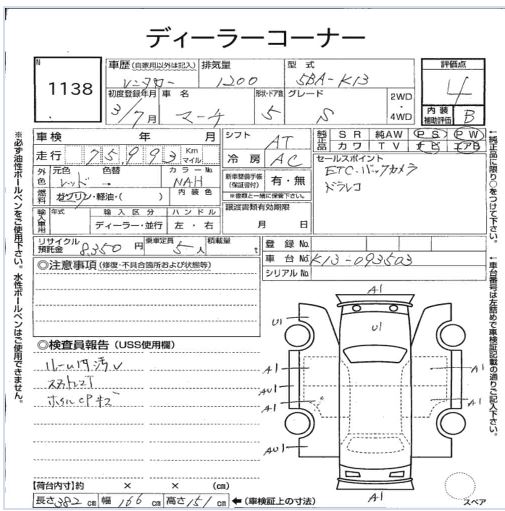 ディーラーコーナー
N 1138
車歴(自家用以外は記入) 排気量 型式 評価点
レンタカー 1200 5BA-K13 4
初度登録年月 車名 形状・ドア数 グレード 2WD・4WD 内装補助評価 B
31/7月 マーチ 5 S
車検 年 月 シフト AT 純正品 SR 純AW PS PW
カワ TV ナビ エアB
走行 75,993 Km マイル 冷房 AC
セールスポイント
ETC.バックカメラ
ドラレコ
外色 元色 色替 カラーNo.
レッド→ NAH
新車整備手帳(保証書付) 有・無
※復期と一緒に保管下さい。
燃料 ガソリン・軽油・( ) 内装色
譲渡書類有効期限
月 日
輸入車用 年式 輸入区分 ハンドル
ディーラー・並行 左・右
リサイクル預託金 8,350円 乗車定員 5人 積載量 t
登録No.
車台No. K13-093503
シリアルNo.
◎注意事項(修復・不具合箇所および状態等)
◎検査員報告(USS使用欄)
ルーム内汚レ
スタットレスT
ホイルCPキズ
A1
U1
U1
A1
A1
AU1
A1
A1
AU1
A1
A1
スペア
【荷台内寸】約 × × (cm)
長さ 382 cm 幅 166 cm 高さ 151 cm ←(車検証上の寸法)
※必ず油性ボールペンをご使用下さい。水性ボールペンはご使用できません。
↑純正品に限り○をつけて下さい。
↑車台番号は左詰めで車検証記載の通りご記入下さい。